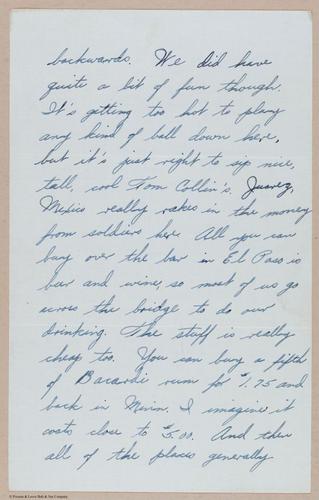 backwards. We did have
quite a bit of fun though.
It's getting too hot to play
any kind of ball down here,
but it's just right to sip nice,
tall, cool Tom Collin's. Juarez,
Mexico really rakes in the money
from soldiers here All you can
buy over the bar in El Paso is
beer and wine, so most of us go
across the bridge to do our
drinking. The stuff is really
cheap too. You can buy a fifth
of Bacardi rum for $1.75 and
back in Minn. I imagine it
costs close to $5.00. And then
all of the places generally